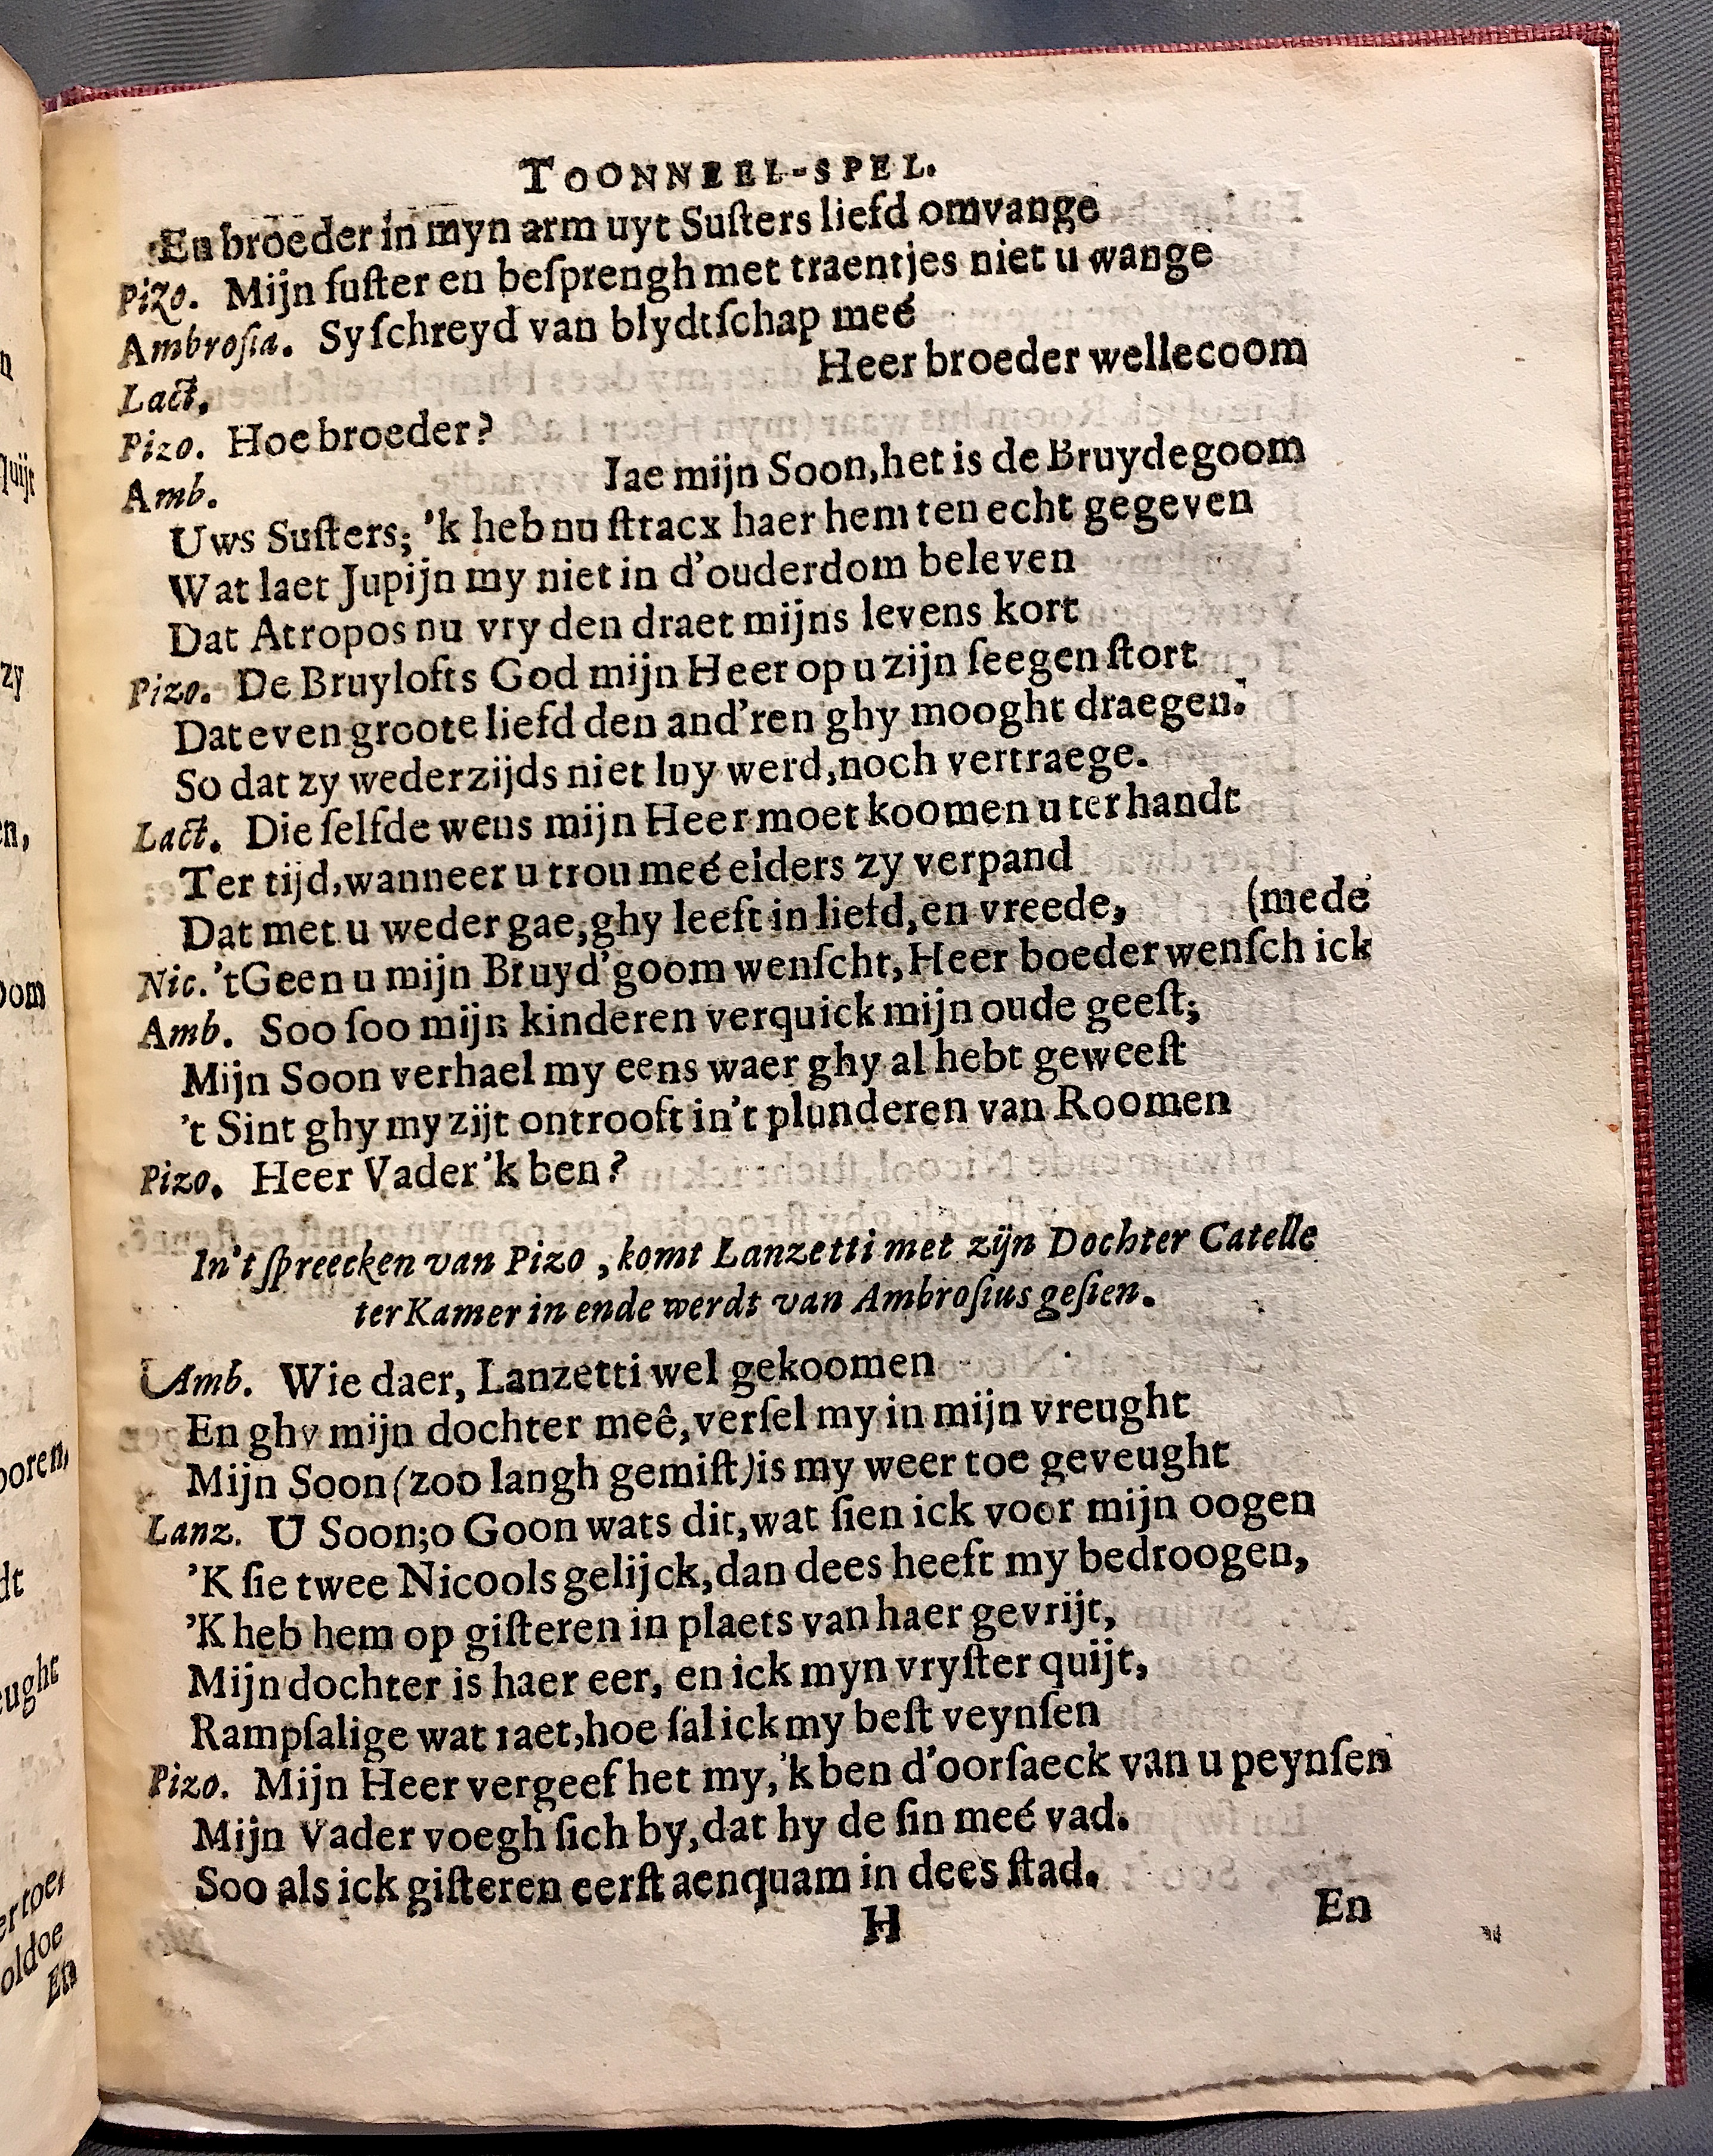 TOONNEEL-SPEL.
En broeder in myn arm uyt Susters liefd omvange
Pizo. Mijn suster en besprengh met traentjes niet u wange
Ambrosia. Sy schreyd van blydtschap meé
Lact. Heer broeder wellecoom
Pizo. Hoe broeder?
Amb. Iae mijn Soon, het is de Bruydegoom
Uws Susters; 'k heb nu stracx haer hem ten echt gegeven
Wat laet Jupijn my niet in d'ouderdom beleven
Dat Atropos nu vry den draet mijns levens kort
Pizo. De Bruylofts God mijn Heer op u zijn seegen stort
Dat even groote liefd den and'ren ghy mooght draegen.
So dat zy wederzijds niet luy werd, noch vertraege.
Lact. Die selfde wens mijn Heer moet koomen u ter handt
Ter tijd, wanneer u trou meé elders zy verpand
Dat met u weder gae, ghy leeft in liefd, en vreede, (mede
Nic. 't Geen u mijn Bruyd'goom wenscht, Heer boeder wensch ick
Amb. Soo soo mijn kinderen verquick mijn oude geest;
Mijn Soon verhael my eens waer ghy al hebt geweest
't Sint ghy my zijt ontrooft in't plunderen van Roomen
Pizo. Heer Vader 'k ben?
In't spreecken van Pizo, komt Lanzetti met zijn Dochter Catelle
ter Kamer in ende werdt van Ambrosius gesien.
Amb. Wie daer, Lanzetti wel gekoomen
En ghy mijn dochter meê, versel my in mijn vreught
Mijn Soon (zoo langh gemist) is my weer toe geveught
Lanz. U Soon; o Goon wats dit, wat sien ick voor mijn oogen
'K sie twee Nicools gelijck, dan dees heeft my bedroogen,
'K heb hem op gisteren in plaets van haer gevrijt,
Mijn dochter is haer eer, en ick myn vryster quijt,
Rampsalige wat raet, hoe sal ick my best veynsen
Pizo. Mijn Heer vergeef het my, 'k ben d'oorsaeck van u peynsen
Mijn Vader voegh sich by, dat hy de sin meé vad.
Soo als ick gisteren eerst aenquam in dees stad.
H En